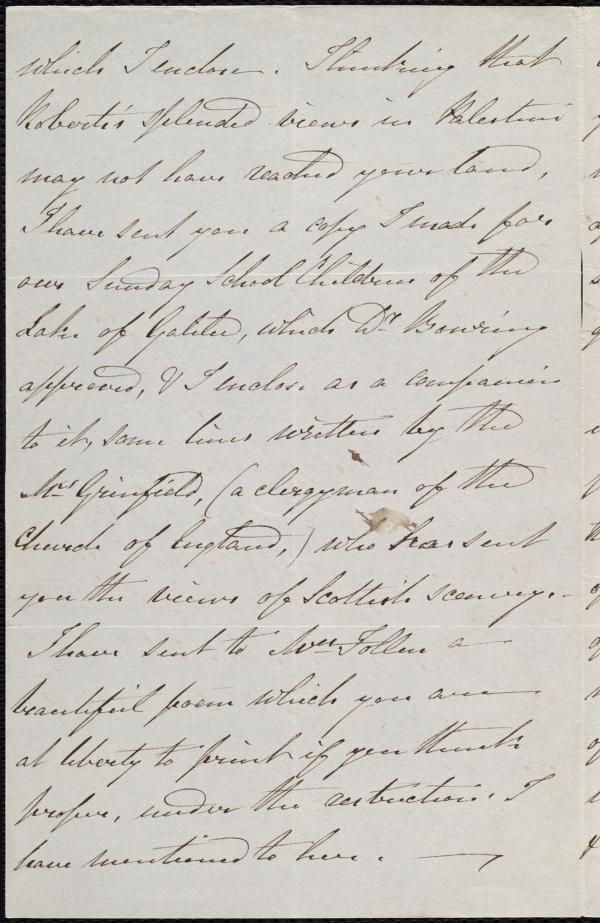 which I enclose. Thinking that
Robert's splendid views in Palestine
may not have reached your land,
I have sent you a copy I made for
our Sunday School Children of the
Lake of Galilee, which Dr. Bowring
approved, & I enclose as a companion
to it, some lines written by the
Grinfield, (a clergyman of the
Church of England,) who has sent
you the views of Scottish scenery. -
I have sent to Mrs Follen a
beautiful poem which you are
at liberty to print if you think
proper, under the restrictions I
have mentioned to her. —